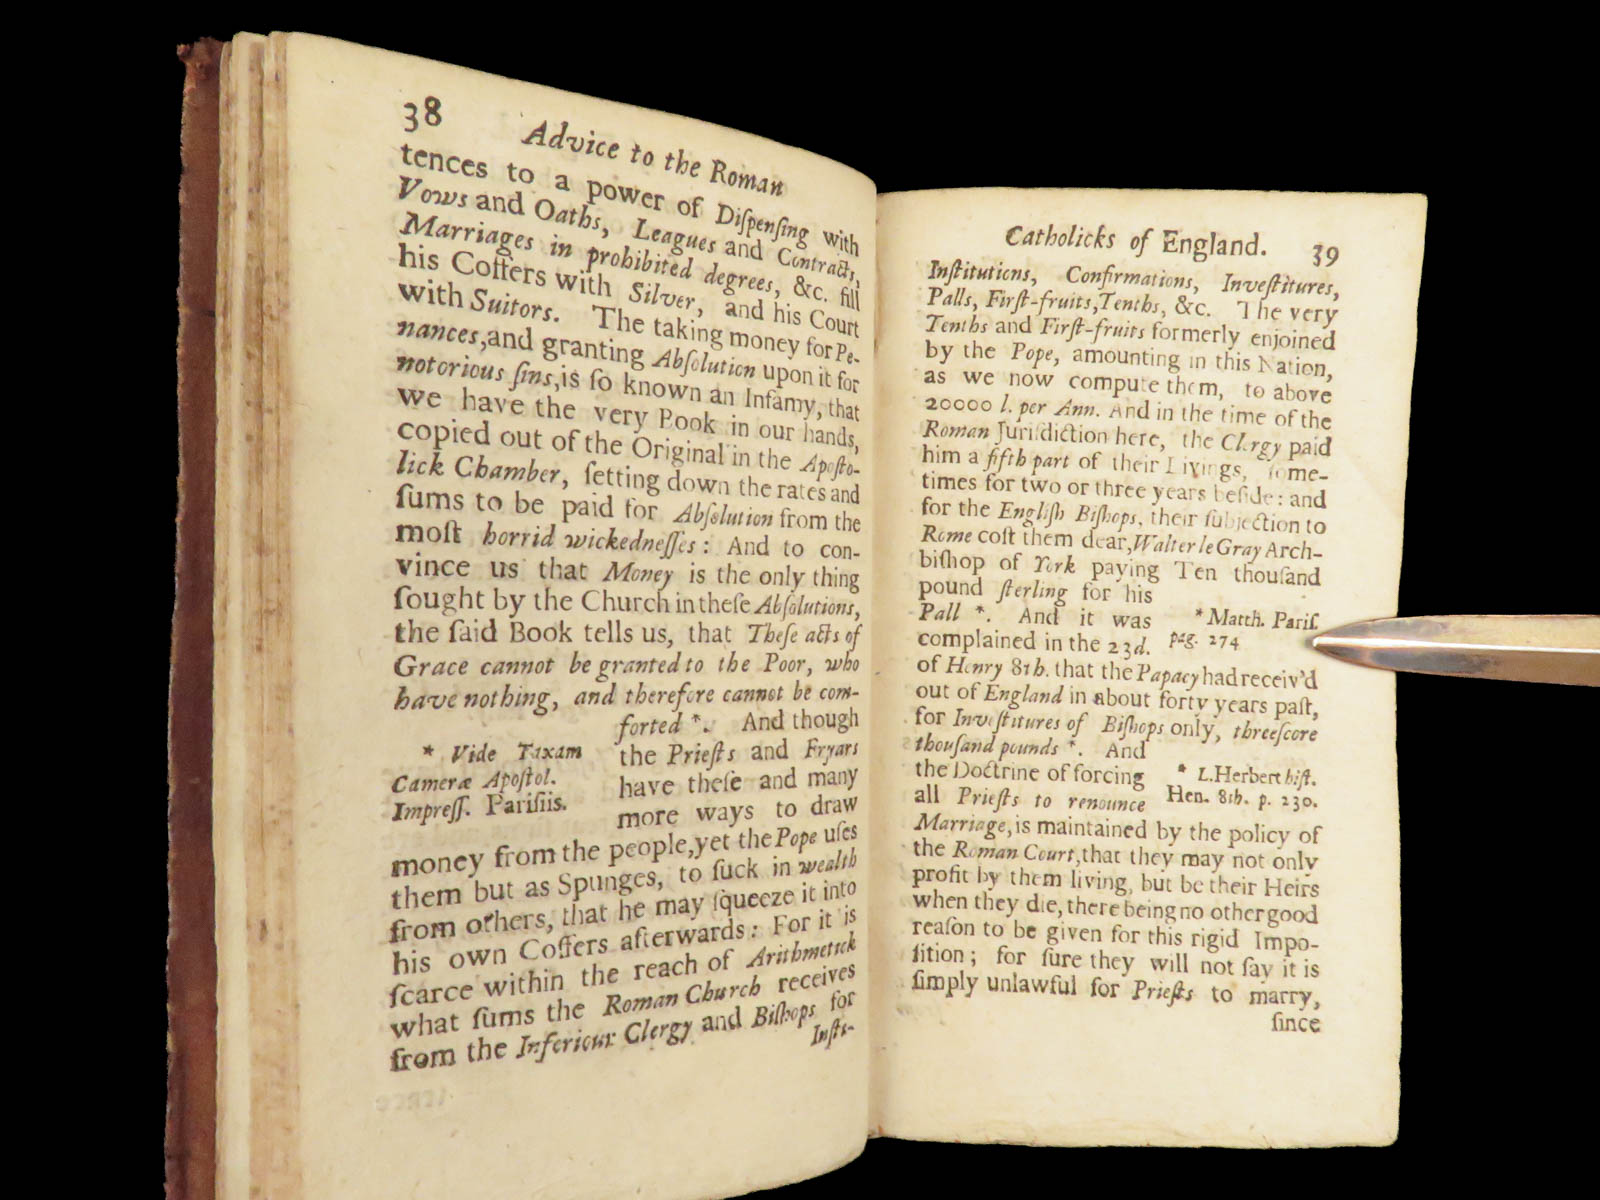 38
Advice to the Roman
tences to a power of Diſpenſing with
Vows and Oaths, Leagues and Contracts,
Marriages in prohibited degrees, &c. fill
his Coffers with Silver, and his Court
with Suitors. The taking money for Pe-
nances, and granting Abſolution upon it for
notorious ſins, is ſo known an Infamy, that
we have the very Book in our hands,
copied out of the Original in the Apoſto-
lick Chamber, ſetting down the rates and
ſums to be paid for Abſolution from the
moſt horrid wickedneſſes: And to con-
vince us that Money is the only thing
ſought by the Church in theſe Abſolutions,
the ſaid Book tells us, that Theſe acts of
Grace cannot be granted to the Poor, who
have nothing, and therefore cannot be com-
forted *. And though
the Prieſts and Fryars
have theſe and many
more ways to draw
* Vide Taxam
Cameræ Apoſtol.
Impreſſ. Pariſiis.
money from the people, yet the Pope uſes
them but as Spunges, to ſuck in wealth
from others, that he may ſqueeze it into
his own Coffers afterwards: For it is
ſcarce within the reach of Arithmetick
what ſums the Roman Church receives
from the Inferiour Clergy and Biſhops for
Inſti-
Catholicks of England. 39
Inſtitutions, Confirmations, Inveſtitures,
Palls, Firſt-fruits, Tenths, &c. The very
Tenths and Firſt-fruits formerly enjoined
by the Pope, amounting in this Nation,
as we now compute them, to above
20000 l. per Ann. And in the time of the
Roman Juriſdiction here, the Clergy paid
him a fifth part of their Livings, ſome-
times for two or three years beſide: and
for the Engliſh Biſhops, their ſubjection to
Rome coſt them dear, Walter le Gray Arch-
biſhop of York paying Ten thouſand
pound ſterling for his
Pall *. And it was
complained in the 23d.
* Matth. Pariſ.
pag. 274
of Henry 8th. that the Papacy had receiv'd
out of England in about forty years paſt,
for Inveſtitures of Biſhops only, threeſcore
thouſand pounds *. And
the Doctrine of forcing
all Prieſts to renounce
* L. Herbert hiſt.
Hen. 8th. p. 230.
Marriage, is maintained by the policy of
the Roman Court, that they may not only
profit by them living, but be their Heirs
when they die, there being no other good
reaſon to be given for this rigid Impo-
ſition; for ſure they will not ſay it is
ſimply unlawful for Prieſts to marry,
ſince